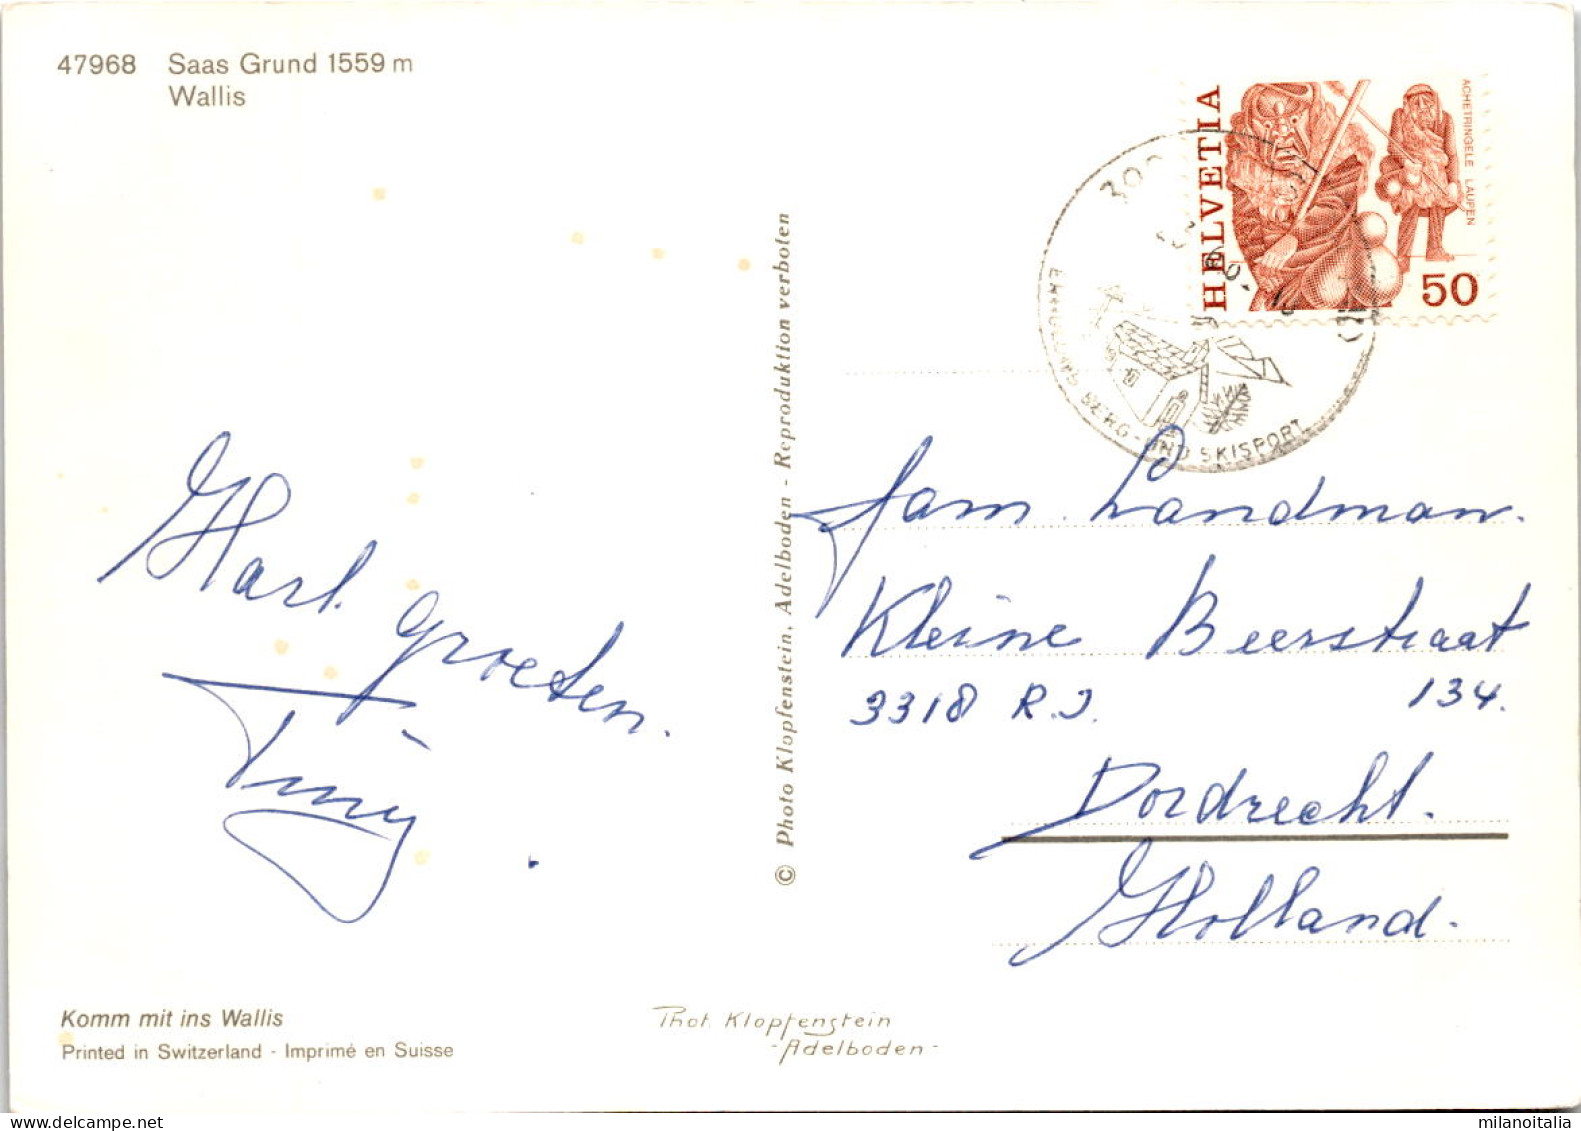 47968 Saas Grund 1559 m
Wallis
HELVETIA
ACHETRINGELE LAUPEN
50
BERG- UND SKISPORT
© Photo Klopfenstein, Adelboden - Reproduktion verboten
Hart. groeten.
Fam. Landman.
Kleine Beerstraat
134.
3318 R.J.
Dordrecht.
Holland.
Komm mit ins Wallis
Printed in Switzerland - Imprimé en Suisse
Phot. Klopfenstein
- Adelboden -
milanoitalia